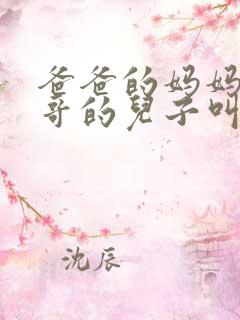 爸爸的妈妈
哥的兒子叫
沈辰